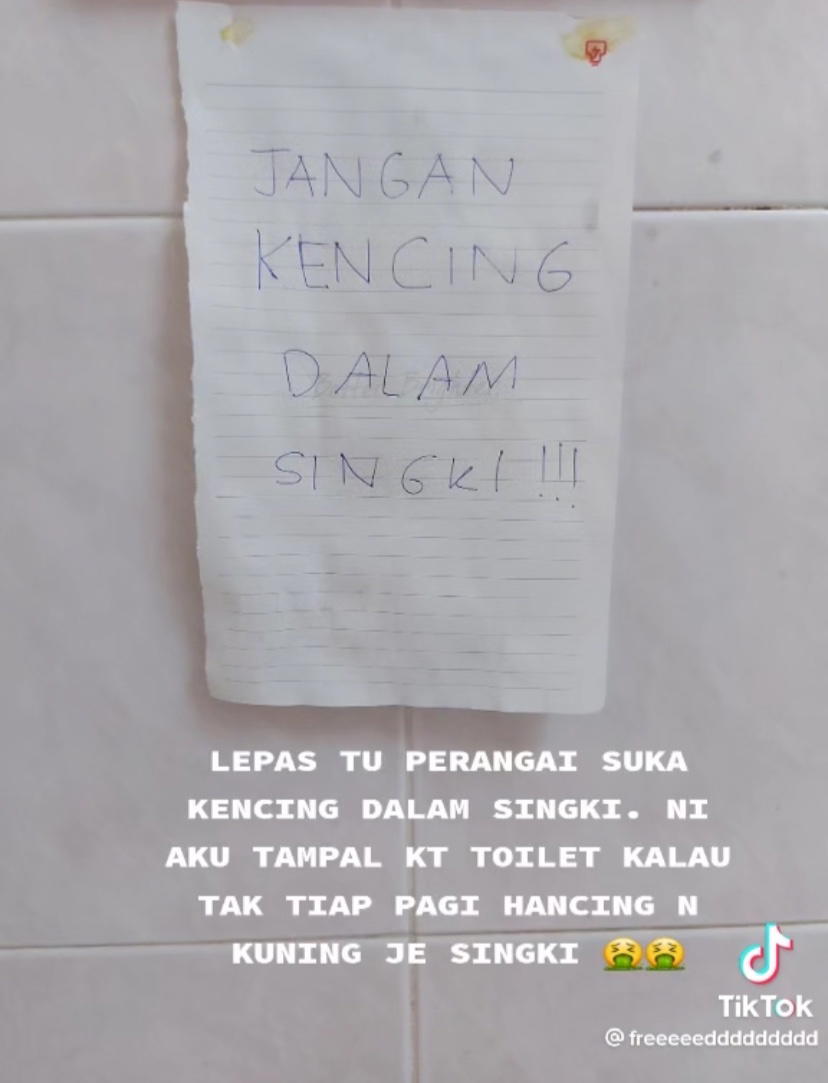 JANGAN
KENCING
DALAM
SINGKI !!!
LEPAS TU PERANGAI SUKA
KENCING DALAM SINGKI. NI
AKU TAMPAL KT TOILET KALAU
TAK TIAP PAGI HANCING N
KUNING JE SINGKI 🤮🤮
TikTok
@freeeeeddddddddd